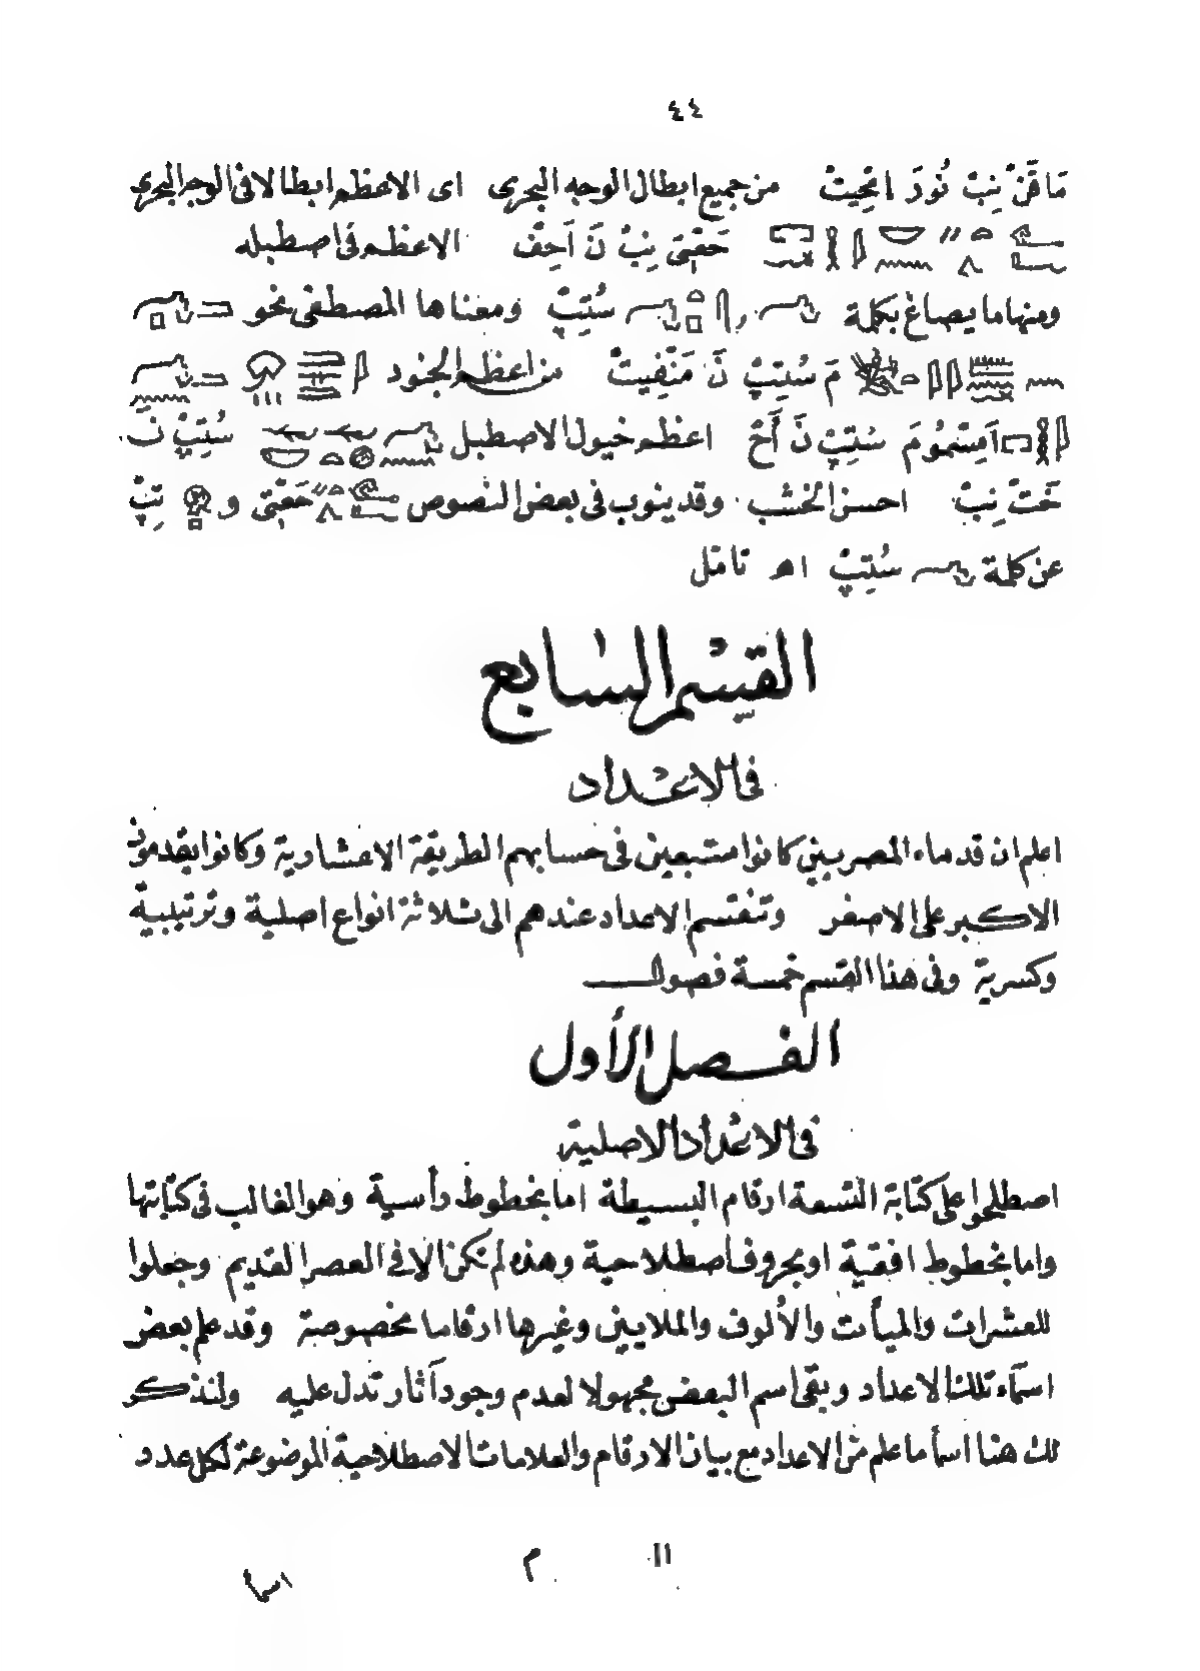 ٤٤
مَا قَنْ نِبْ نُودَ امْحِيتْ من جميع ابطال الوجه البحرى اى الاعظم ابطالا فى الوجه البحرى
حَقْتِى نِبْ نَ اَحِفْ الاعظم فى اصطبله
ومنها ما يصاغ بكلمة سُتِپْ ومعناها المصطفى نحو
مَ سُتِپْ نَ مَنْفِيتْ من اعظم الجنود
مَ سُتِپْ نَ أَحْ اعظم خيول الاصطبل سُتِپْ نَ
خَتْ نِبْ احسن الخشب وقد ينوب فى بعض النصوص حَقْتِى و تِپْ
عن كلمة سُتِپْ اه تامل
القسم السابع
فى الاعداد
اعلم ان قدماء المصريين كانوا متبعين فى حسابهم الطريقة الاعشارية وكانوا يقدمون
الاكبر على الاصغر وتنقسم الاعداد عندهم الى ثلاثة انواع اصلية وترتيبية
وكسرية وفى هذا القسم خمسة فصول
الفصل الأول
فى الاعداد الاصلية
اصطلحوا على كتابة التسعة ارقام البسيطة اما بخطوط رأسية وهو الغالب فى كتابتها
واما بخطوط افقية او بحروف اصطلاحية وهذه لم تكن الا فى العصر القديم وجعلوا
للعشرات والميأت والألوف والملايين وغيرها ارقاما مخصوصة وقد علم بعض
اسمآء تلك الاعداد وبقى اسم البعض مجهولا لعدم وجود آثار تدل عليه ولنذكر
لك هنا اسما ما علم من الاعداد مع بيان الارقام والعلامات الاصطلاحية الموضوعة لكل عدد
١١ م